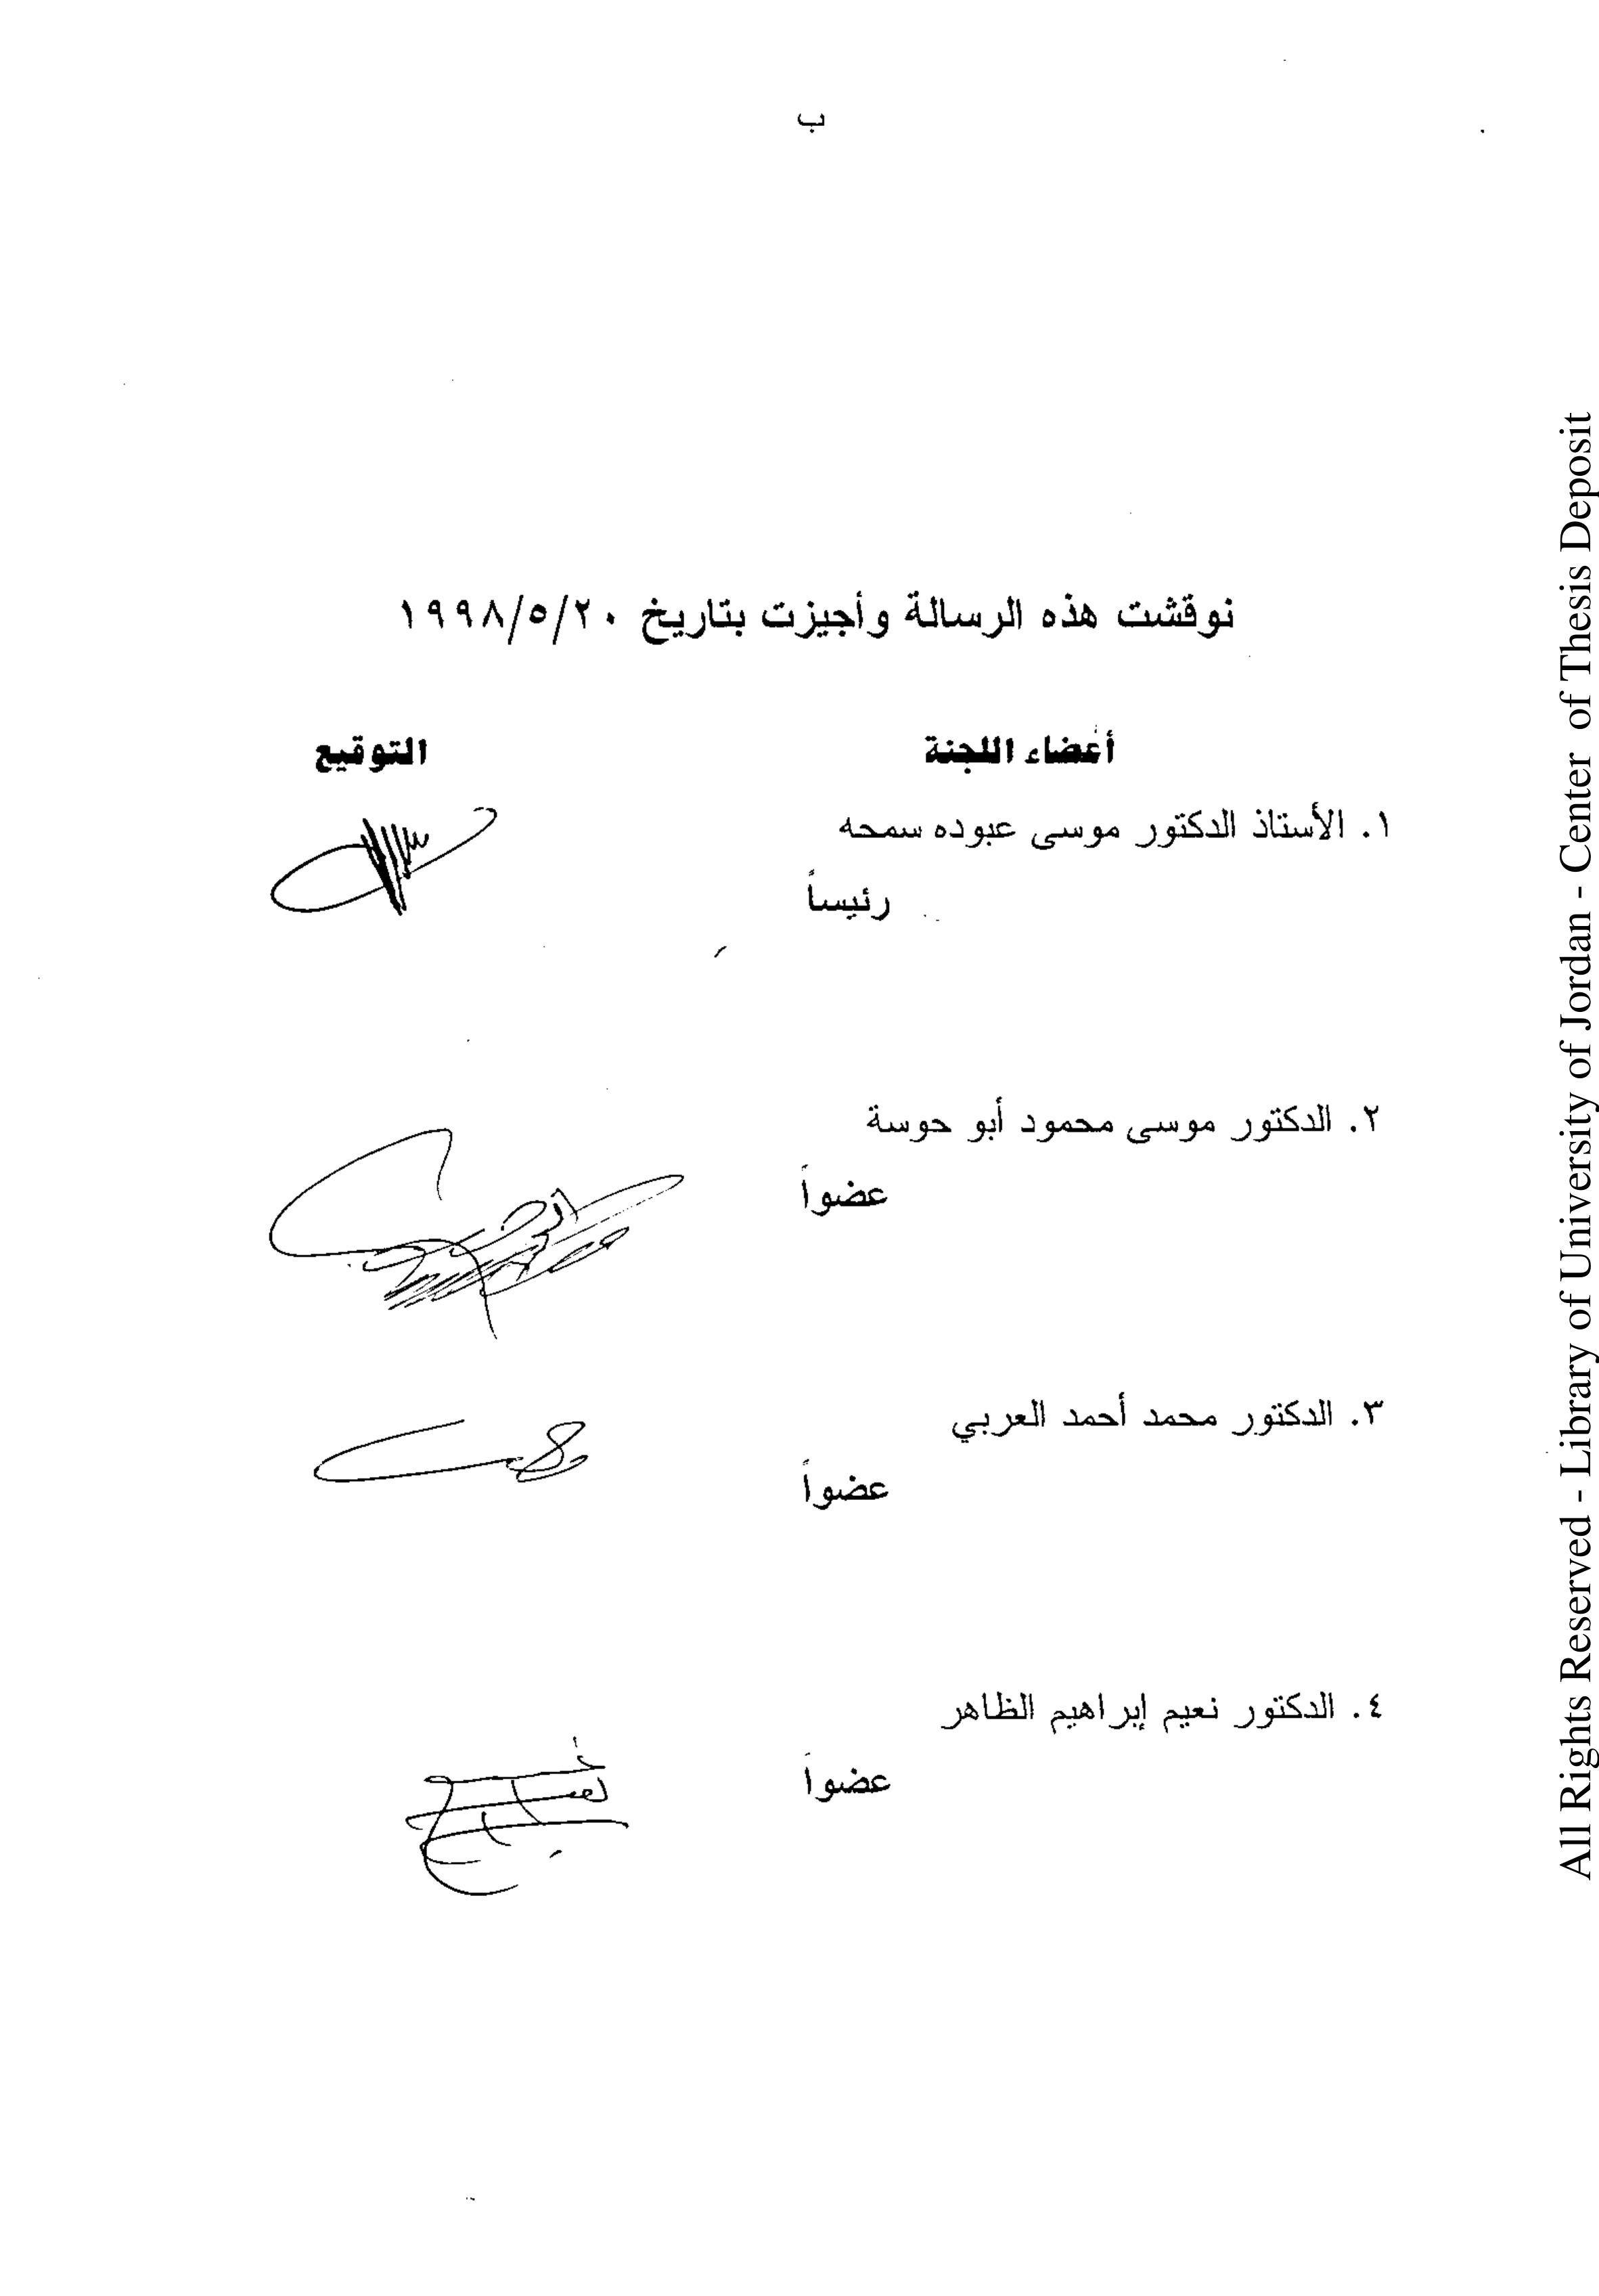 ب
نوقشت هذه الرسالة وأجيزت بتاريخ ١٩٩٨/٥/٢٠
أعضاء اللجنة التوقيع
١. الأستاذ الدكتور موسى عبوده سمحه
رئيساً
٢. الدكتور موسى محمود أبو حوسة
عضواً
٣. الدكتور محمد أحمد العربي
عضواً
٤. الدكتور نعيم إبراهيم الظاهر
عضواً
All Rights Reserved - Library of University of Jordan - Center of Thesis Deposit